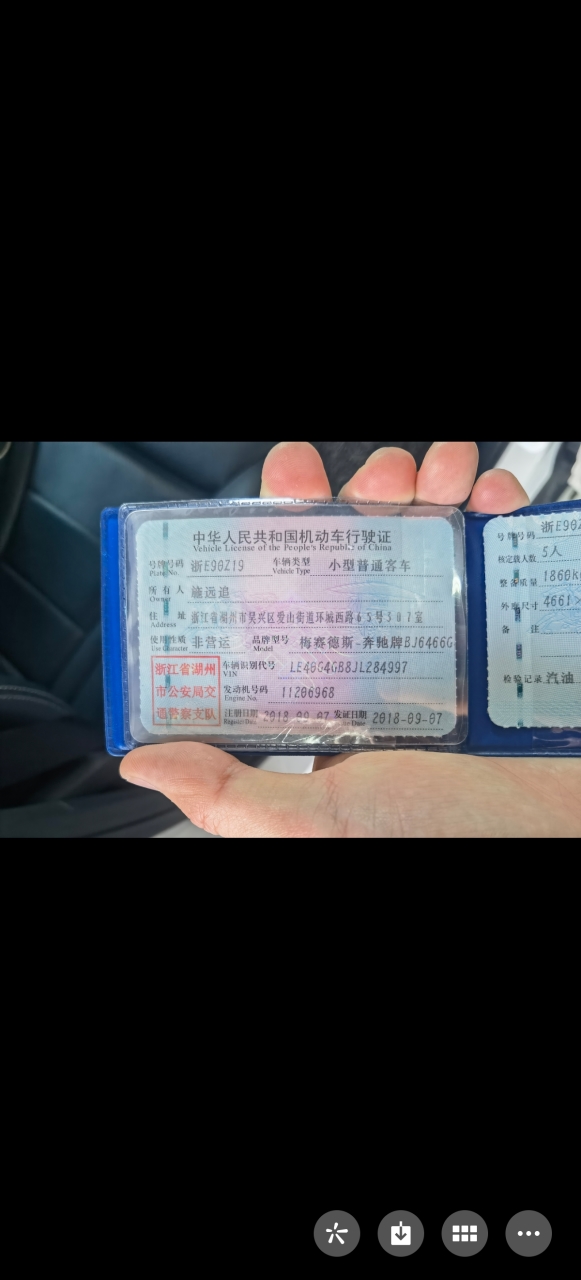 中华人民共和国机动车行驶证
Vehicle License of the People's Republic of China
号牌号码 浙E90Z19 车辆类型 小型普通客车
Plate No. Vehicle Type
所有人 施远追
Owner
住址 浙江省湖州市吴兴区爱山街道环城西路65号307室
Address
使用性质 非营运 品牌型号 梅赛德斯-奔驰牌BJ6466G
Use Character Model
浙江省湖州
市公安局交
通警察支队
车辆识别代号 LE40G4GB8JL284997
VIN
发动机号码 11206968
Engine No.
注册日期 2018-09-07 发证日期 2018-09-07
号牌号码 浙E90Z
核定载人数 5人
整备质量 1860k
外廓尺寸 4661×
备注
检验记录 汽油